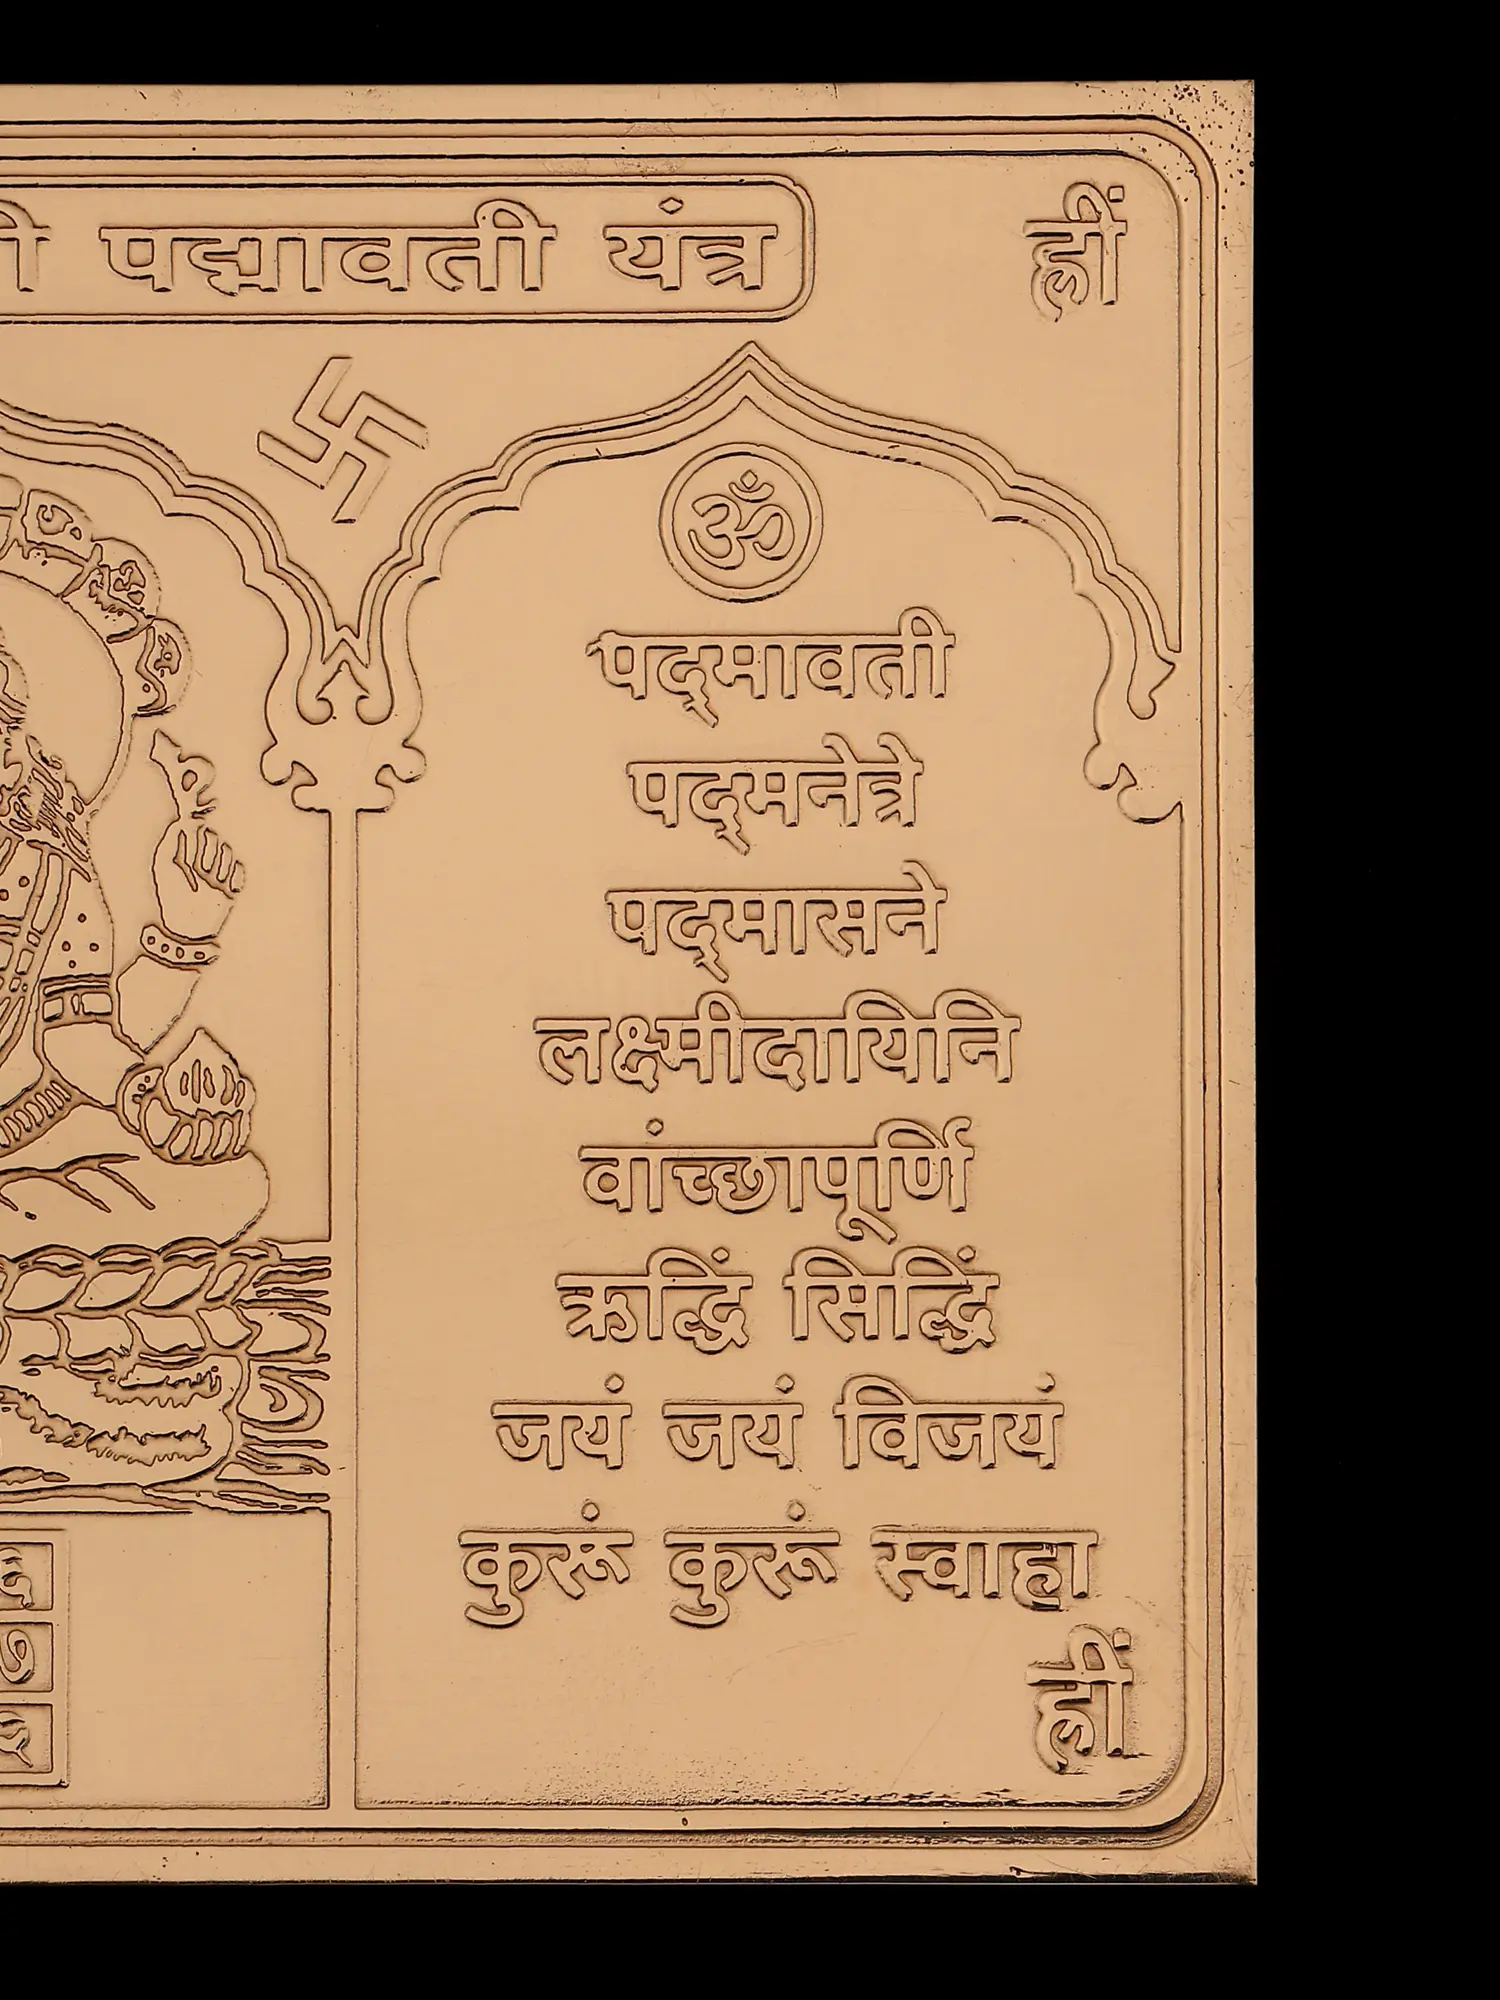 पद्मावती यंत्र
ह्रीं
ॐ
पद्‌मावती
पद्‌मनेत्रे
पद्‌मासने
लक्ष्मीदायिनि
वांच्छापूर्णि
ऋद्धिं सिद्धिं
जयं जयं विजयं
कुरूं कुरूं स्वाहा
ह्रीं